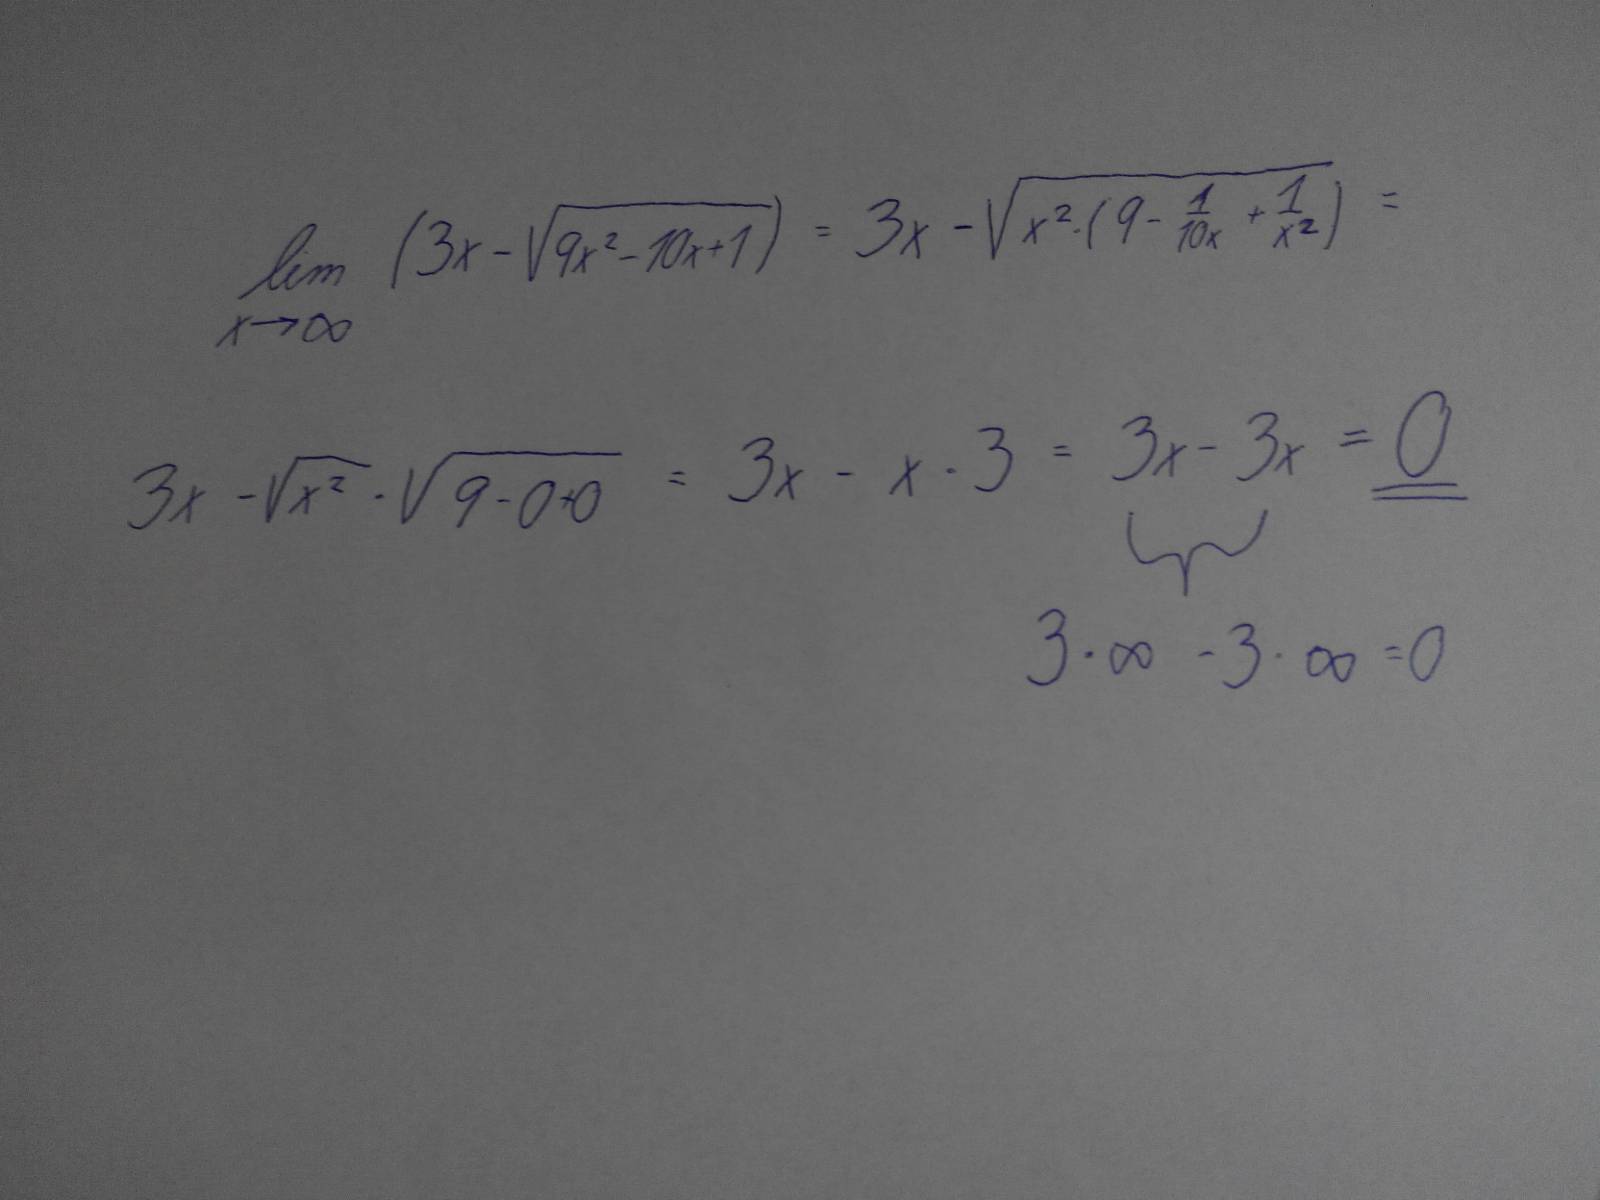 lim x→∞ (3x - √(9x² - 10x + 1)) = 3x - √(x²·(9 - 1/10x + 1/x²)) =
3x - √x² · √(9 - 0+0) = 3x - x · 3 = 3x - 3x = 0
3 · ∞ - 3 · ∞ = 0